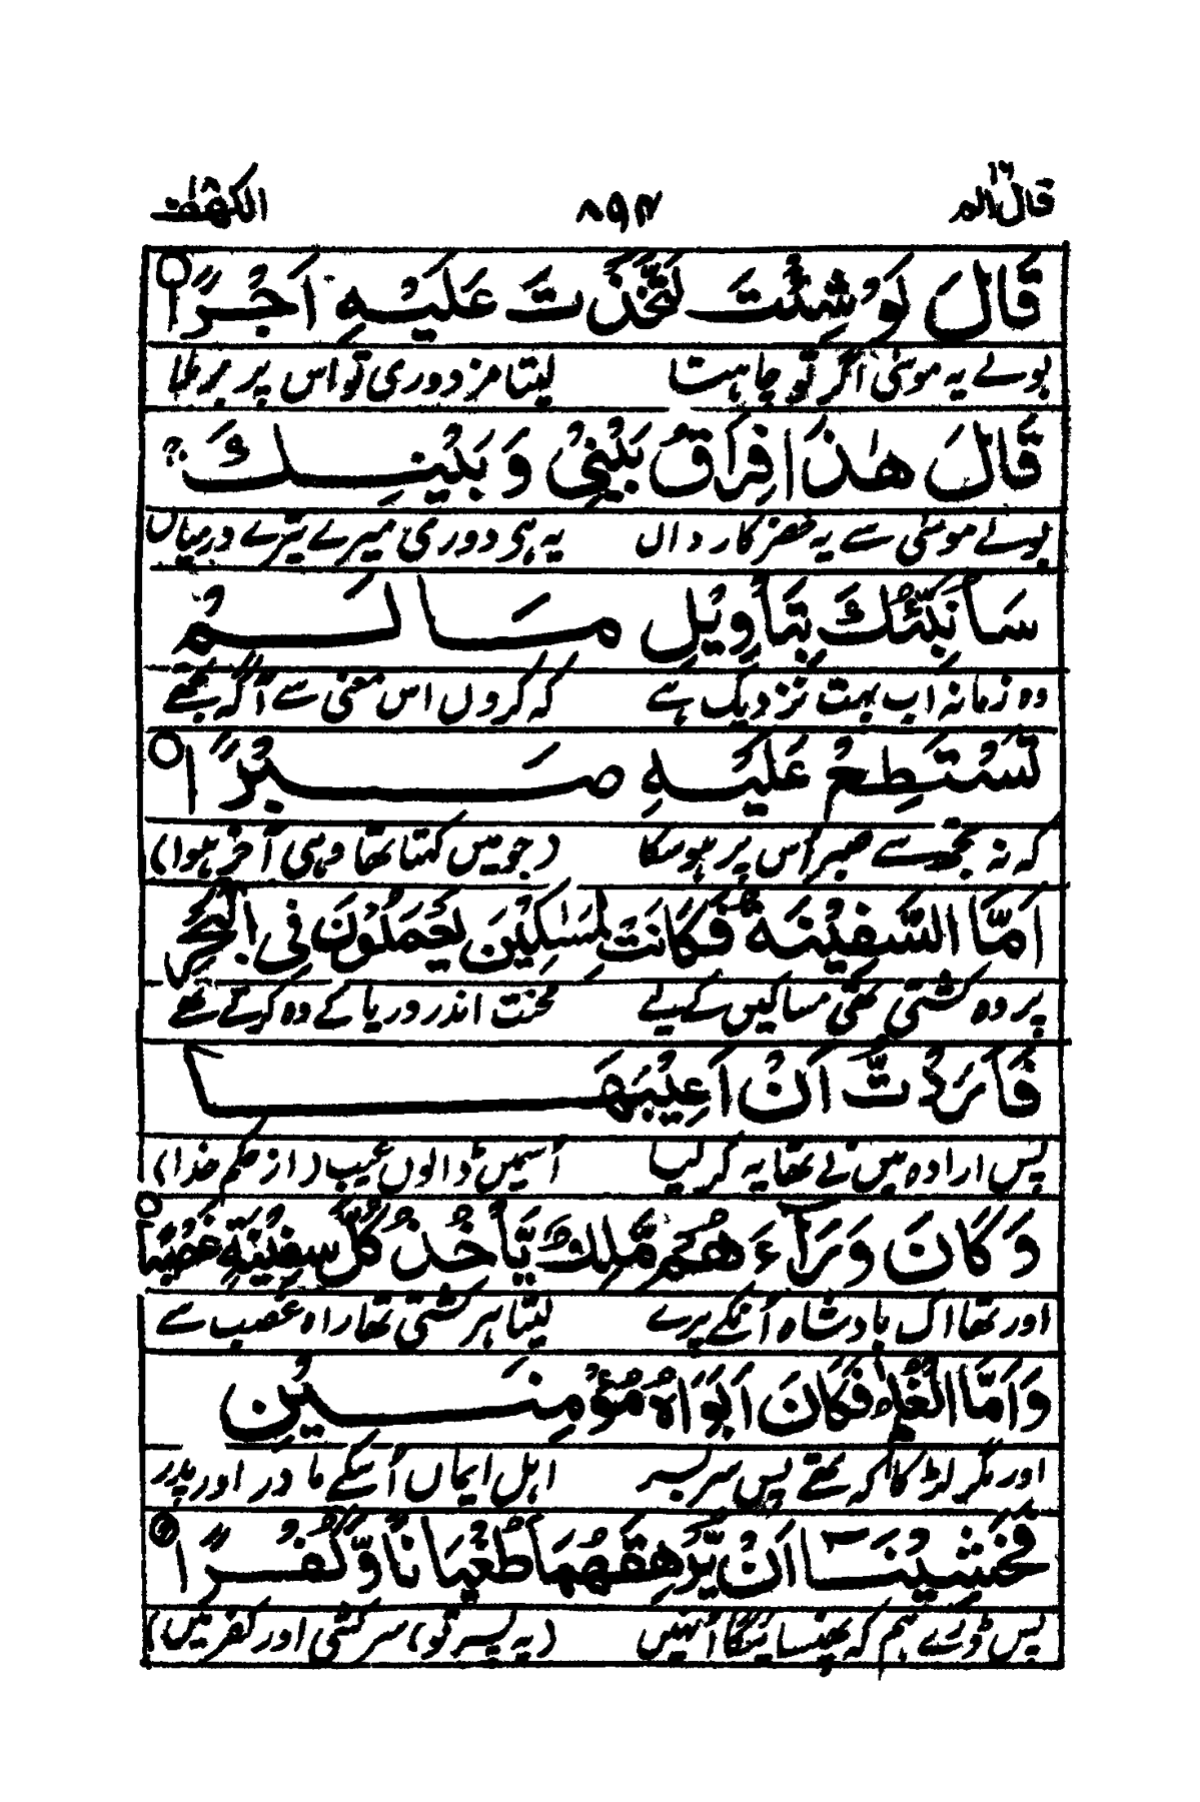 قال الم ۱۶ ۸۹۴ الکھف ۱۸
قَالَ لَوْ شِئْتَ لَتَّخَذْتَ عَلَيْهِ اَجْرًا ○
بولے یہ موسٰی اگر تو چاہتا لیتا مزدوری تو اس پر برملا
قَالَ هٰذَا فِرَاقُ بَيْنِيْ وَ بَيْنِكَ ج
بولے موسٰی سے یہ خضر کاردال یہ ہی دوری میرے تیرے درمیاں
سَاُنَبِّئُكَ بِتَأْوِيْلِ مَا لَمْ
وہ زمانہ اب بہت نزدیک ہے کہ کروں اس معنی سے آگہ تجھے
تَسْتَطِعْ عَلَيْهِ صَبْرًا ○
کہ نہ تجھ سے صبر اُس پر ہو سکا (جو میں کہتا تھا وہی آخر ہوا)
اَمَّا السَّفِيْنَةُ فَكَانَتْ لِمَسٰكِيْنَ يَعْمَلُوْنَ فِي الْبَحْرِ
پر وہ کشتی تھی مساکیں کے لیے محنت اندر دریا کے وہ کرتے تھے
فَاَرَدْتُّ اَنْ اَعِيْبَهَا
پس ارادہ میں نے تھا یہ کر لیا اُسمیں ڈالوں عیب (از حکم خدا)
وَكَانَ وَرَآءَ هُمْ مَّلِكٌ يَّاْخُذُ كُلَّ سَفِيْنَةٍ غَصْبًا ○
اور تھا اک بادشاہ اُنکے پرے لیتا ہر کشتی تھا راہ غصب سے
وَاَمَّا الْغُلٰمُ فَكَانَ اَبَوَاهُ مُؤْمِنَيْنِ
اور مگر لڑکا کہ تھے پس سربسر اہل ایماں اُسکے مادر اور پدر
فَخَشِيْنَآ اَنْ يُّرْهِقَهُمَا طُغْيَانًا وَّكُفْرًا ○
پس ڈرے ہم کہ پھنسائیگا اُنہیں (یہ پسر تو) سرکشی اور کفر میں)